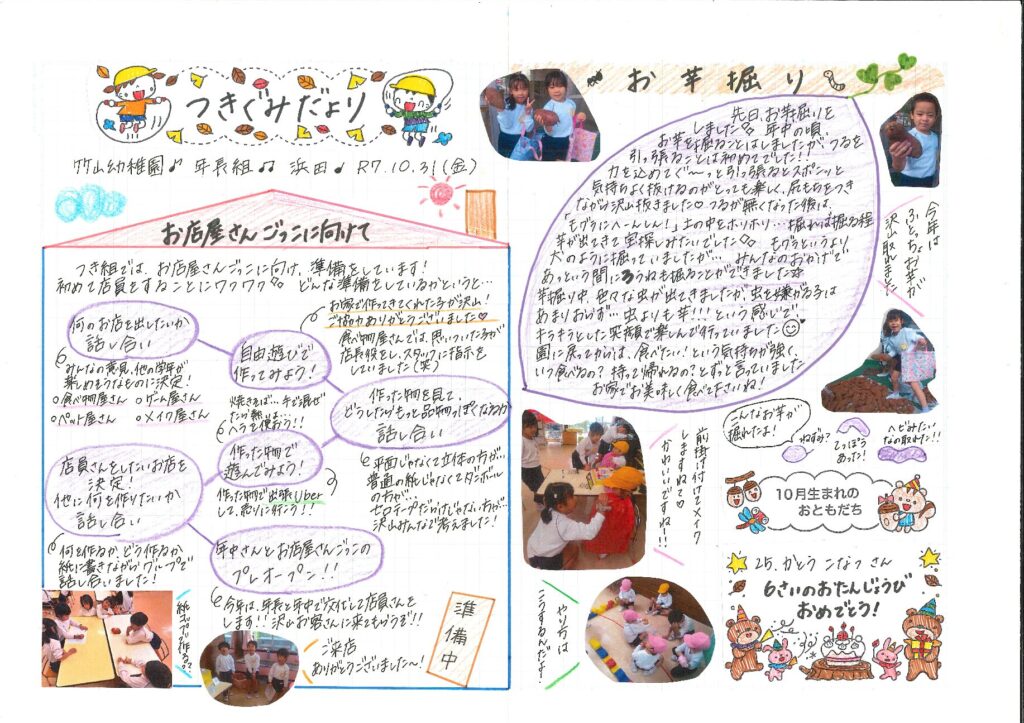 つきぐみだより
竹山幼稚園♪ 年長組♫ 浜田♩ R7.10.31(金)
お店屋さんごっこに向けて
つき組では、お店屋さんごっこに向け、準備をしています!
初めて店員をすることにワクワク♡ どんな準備をしているかというと…
何のお店を出したいか
話し合い
みんなの意見、他の学年が
楽しめそうなものに決定!
○食べ物屋さん ○ゲーム屋さん
○ペット屋さん ○メイク屋さん
自由遊びで
作ってみよう!
お家で作ってきてくれた子が沢山!
ご協力ありがとうございました♡
食べ物屋さんでは、思いついた子が
店長役をし、スタッフに指示を
していました(笑)
焼きそば…手で混ぜ
たら熱い…
ヘラを使おう!!
作った物を見て、
どうしたらもっと品物っぽくなるか
話し合い
平面じゃなくて立体の方が…
普通の紙じゃなくてダンボール
の方が…
セロテープだらけじゃない方が…
沢山みんなで考えました!
作った物で
遊んでみよう!
作った物で出張Uber
して、売りに行こう!!
店員さんをしたいお店を
決定!
他に何を作りたいか
話し合い
何を作るか、どう作るか、
紙に書きながらグループで
話し合いました!
年中さんとお店屋さんごっこの
プレオープン!!
今年は、年長と年中で交代して店員さんを
します!!沢山お客さんに来てもらうぞ!!
紙コップで作る?
ご来店
ありがとうございました〜!
準備中
お芋掘り
先日、お芋掘りを
しました♡ 年中の頃、
お芋を掘ることはしましたが、つるを
引っ張ることは初めてでした!!
力を込めてぐ〜っと引っ張るとスポンッと
気持ちよく抜けるのがとっても楽しく、尻もちをつき
ながら沢山抜きました♡つるが無くなった後は、
「モグラにへーんしん!」土の中をホリホリ…掘れば掘る程
芋が出てきて宝探しみたいでした♡ モグラというより、
犬のように掘っていましたが…みんなのおかげで
あっという間に3うねも掘ることができました☆
芋掘り中、色々な虫が出てきましたが、虫を嫌がる子は
あまりおらず…虫よりも芋!!!という勢いで、
キラキラとした笑顔で楽しんで行っていました
園に戻ってからは、食べたい!という気持ちが強く、
いつ食べるの?持って帰れるの?とずっと言っていました
お家でお美味しく食べて下さいね!
今年は
ふとっちょお芋が
沢山取れました
こんなお芋が
掘れたよ!
ねずみ?
てっぽう
あった!
ヘビみたい
なの取れた!!
前掛け付けてメイク
しますね〜♡
かわいいですね!!
やり方は
こうするんだよ。
10月生まれの
おともだち
25.かとう こなつ さん
6さいのおたんじょうび
おめでとう!